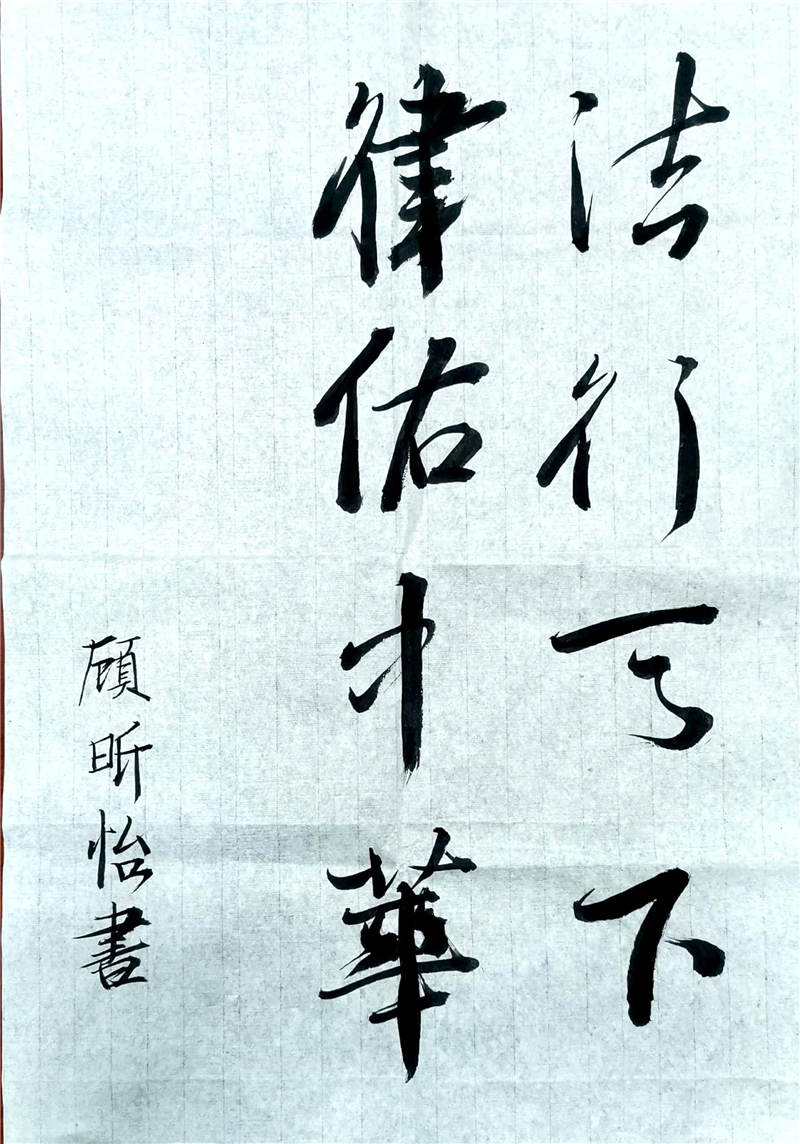 法行天下
律佑中華
顧昕怡書